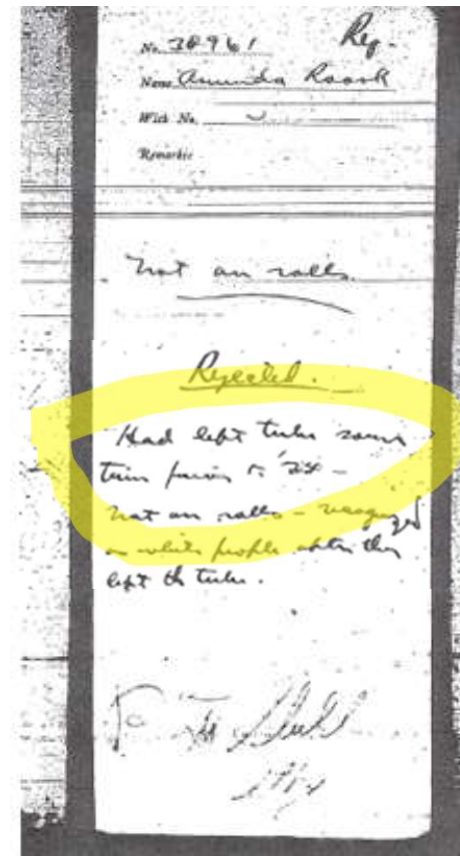 No. 38961 Rej.
Name Arminda Roark
With No.
Remarks
Not on rolls.
Rejected.
Had left tribe some
time prior to '34 -
Not on rolls - recognized
as white people after they
left the tribe.